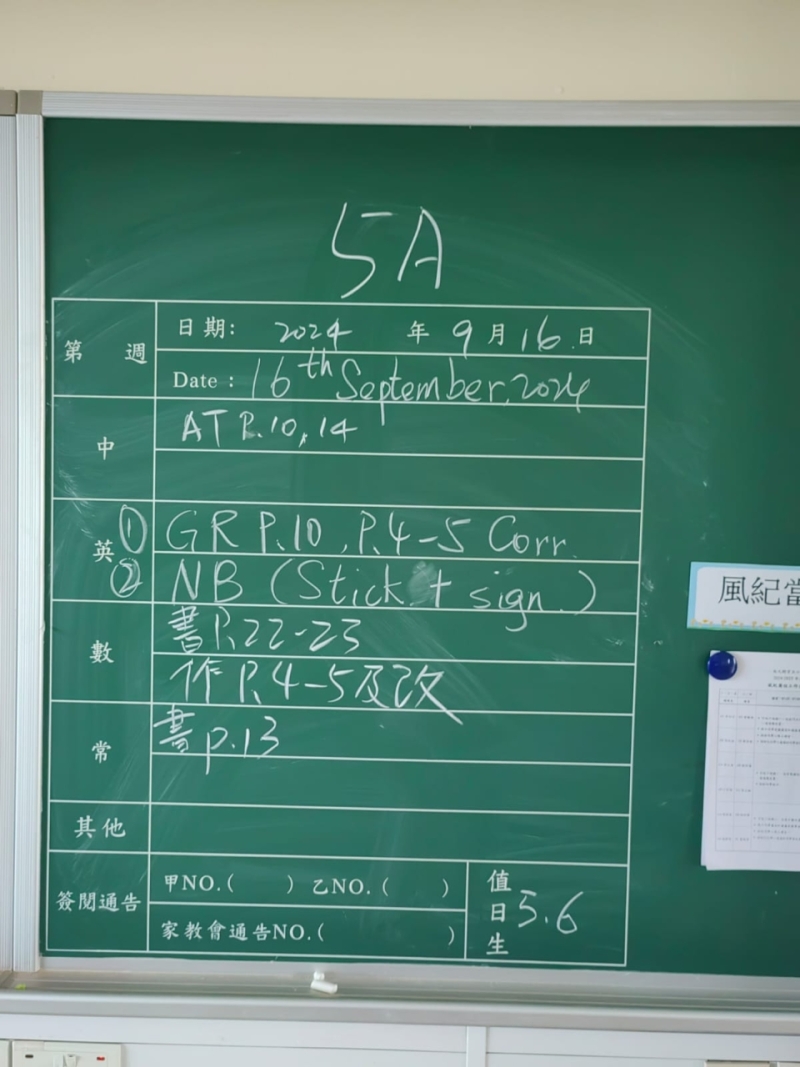 5A
第 週
日期: 2024 年 9 月 16 日
Date : 16th September, 2024
中
AT P.10, 14
英
① GR P.10, P.4-5 Corr.
② NB (Stick + sign.)
數
書P.22-23
作P.4-5及改
常
書p.13
其他
簽閱通告
甲NO.( ) 乙NO.( )
家教會通告NO.( )
值日生 5.6
風紀當